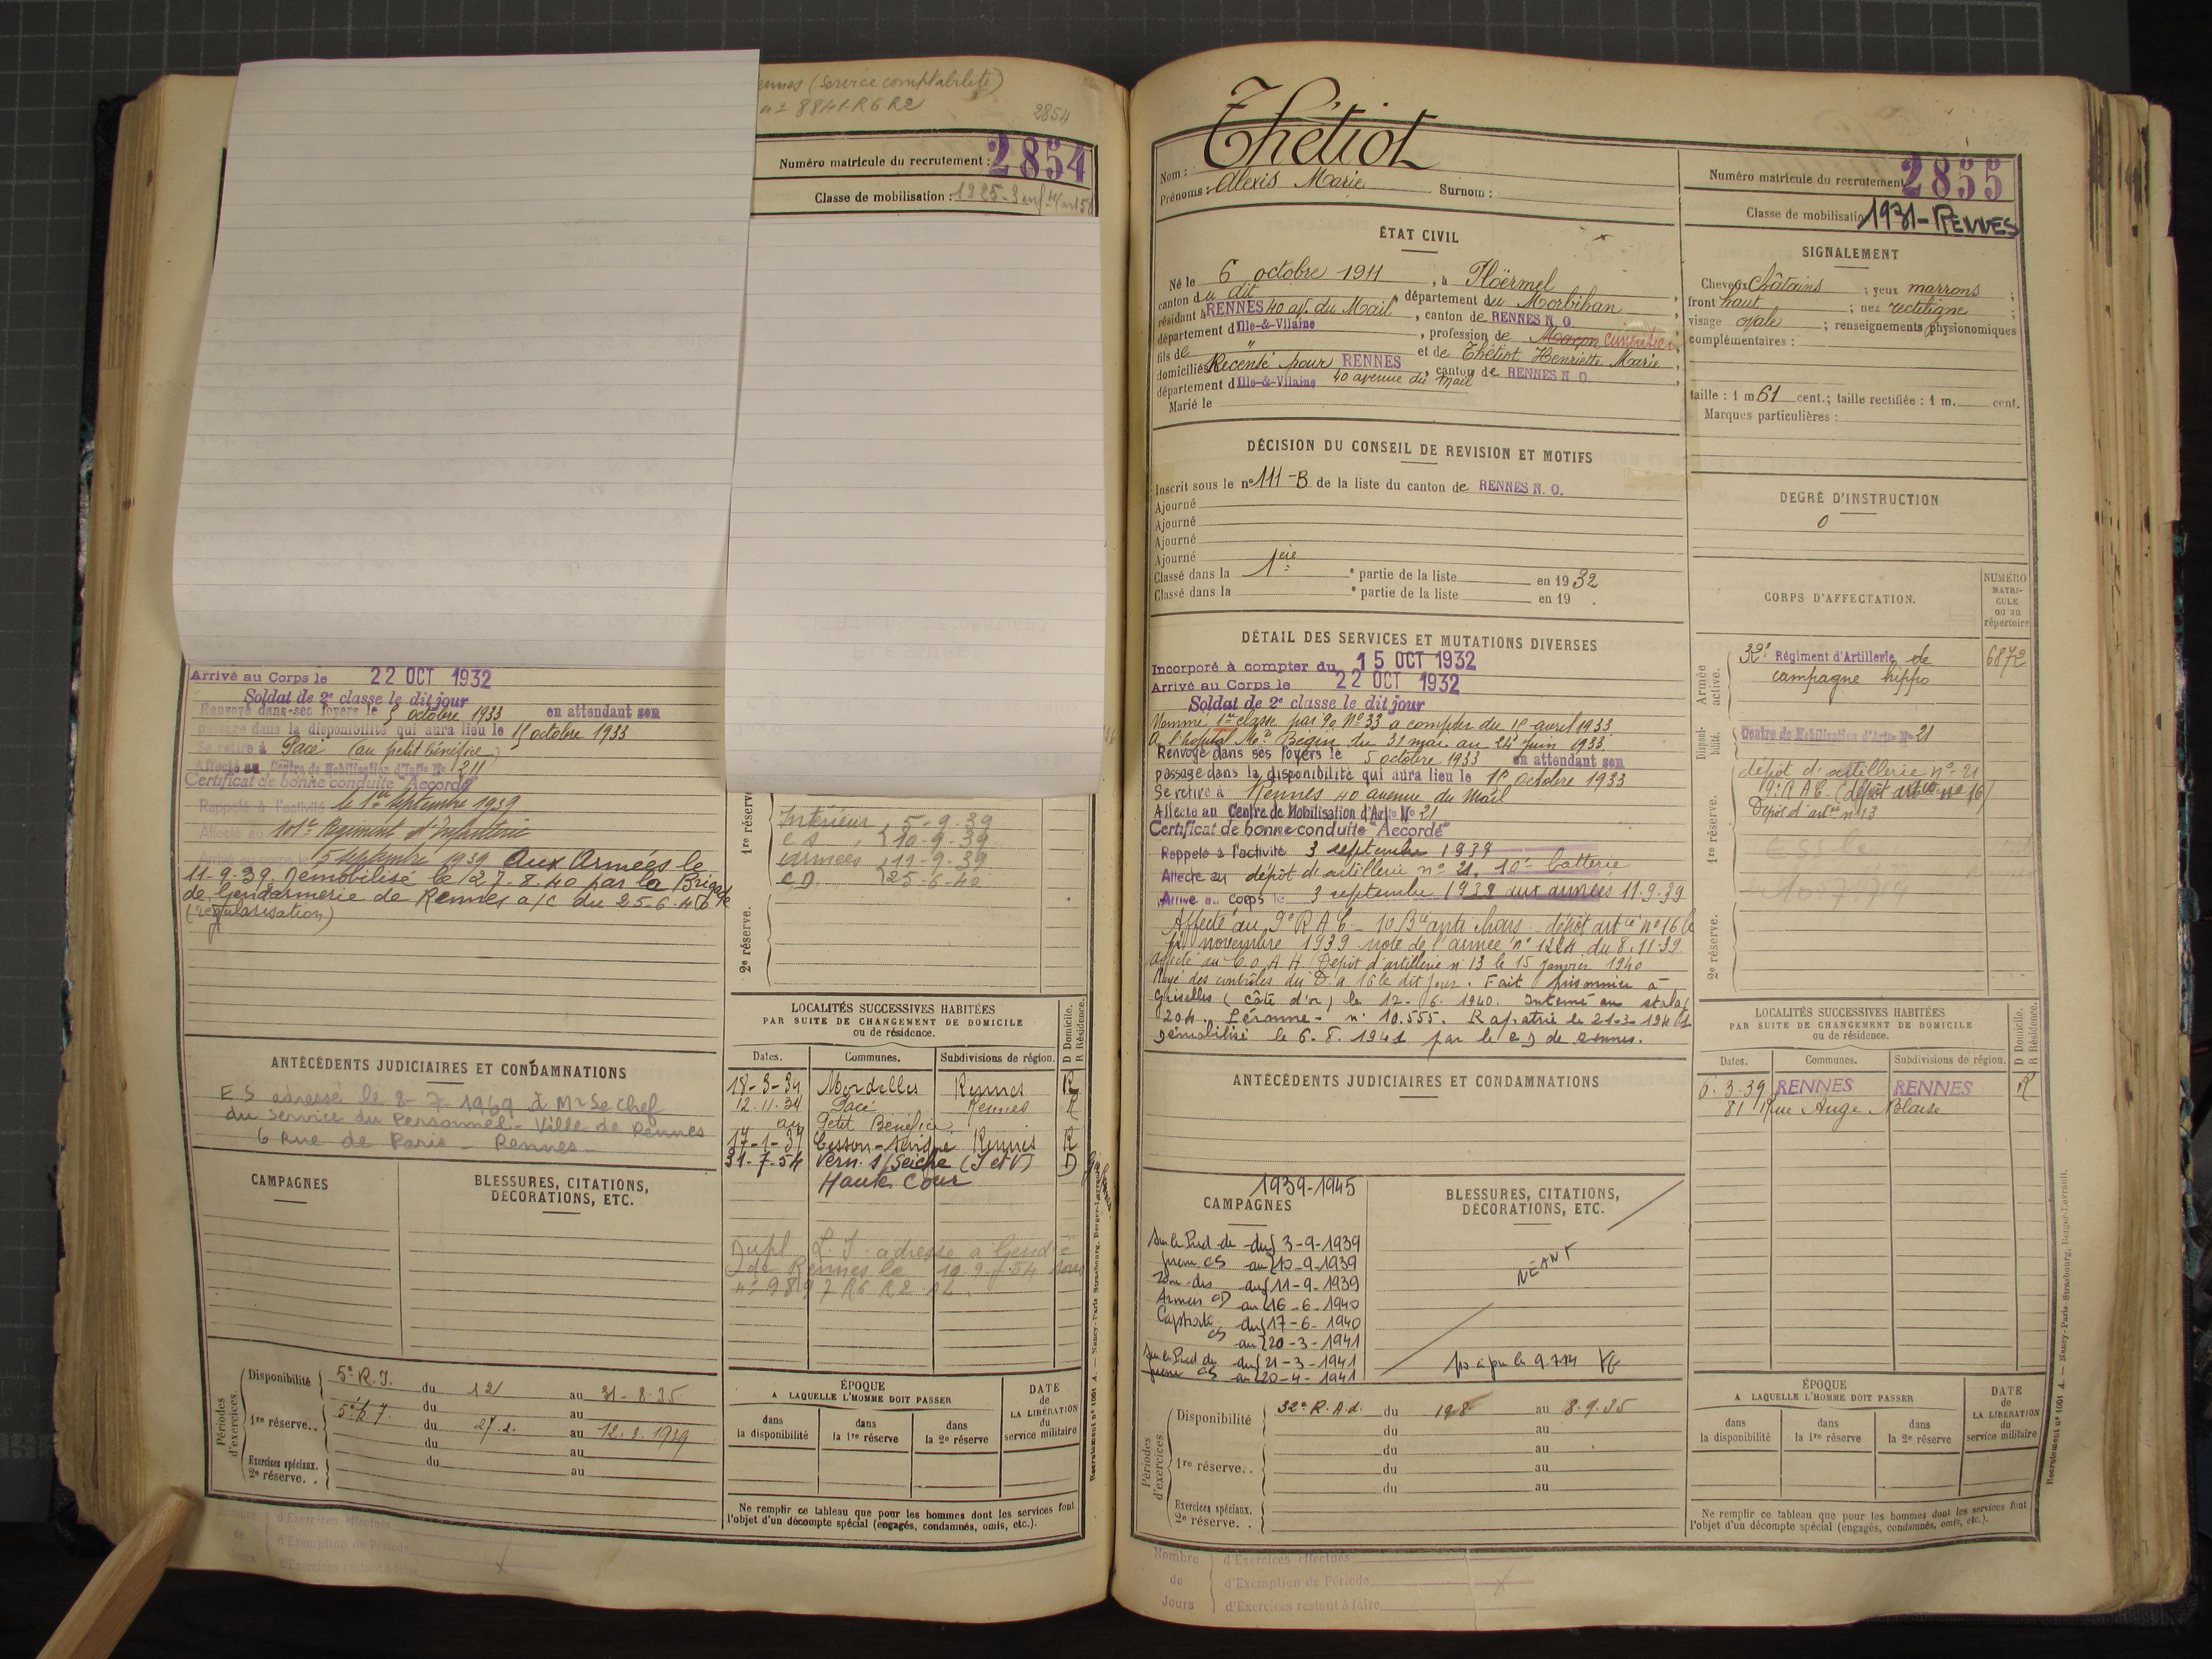 ennes (Service comptabilité)
n° 8841-R6 R2
2854
Numéro matricule du recrutement : 2854
Classe de mobilisation : 1925-3 enf
Arrivé au Corps le 22 OCT 1932
Soldat de 2e classe le dit jour
Renvoyé dans ses foyers le 5 octobre 1933 en attendant son
passage dans la disponibilité qui aura lieu le 15 octobre 1933
Se retire à Pacé (au petit bénéfice)
Affecté au Centre de Mobilisation d'Infie No 211
Certificat de bonne conduite "Accordé"
Rappelé à l'activité le 1er septembre 1939
Affecté au 101e Régiment d'Infanterie
Arrivé au corps le 5 septembre 1939 Aux Armées le
11-9-39. Démobilisé le 27-8-40 par la Brigade
de Gendarmerie de Rennes a/c du 25-6-40
(régularisation)
1re réserve.
Intérieur, 5-9-39
CS, 10-9-39
Armées, 11-9-39
CD. 25-6-40
2e réserve.
ANTÉCÉDENTS JUDICIAIRES ET CONDAMNATIONS
E S adressé le 8-7-1969 à Mr Le Chef
du Service du Personnel - Ville de Rennes
6 Rue de Paris - Rennes -
LOCALITÉS SUCCESSIVES HABITÉES
PAR SUITE DE CHANGEMENT DE DOMICILE
ou de résidence.
D Domicile.
R Résidence.
Dates. Communes. Subdivisions de région.
18-3-34 Mordelles Rennes R
12.11.34 Pacé Rennes R
au Petit Bénéfice
17-1-37 Cesson-Sévigné Rennes R
31-7-54 Vern s/Seiche (I et V) D
Haute Cour
Dupl L. I. adressé à Gend
de Rennes le 10-9-54 sous
n° 9897 R6 R2
CAMPAGNES
BLESSURES, CITATIONS,
DÉCORATIONS, ETC.
Périodes d'exercices.
Disponibilité 5e R.I. du 12 au 31-8-35
du au
1re réserve.. 5e R.I. du 27.2. au 12.3.1939
du au
Exercices spéciaux.
2e réserve. . du au
ÉPOQUE
A LAQUELLE L'HOMME DOIT PASSER
dans la disponibilité
dans la 1re réserve
dans la 2e réserve
DATE de LA LIBÉRATION du service militaire
Ne remplir ce tableau que pour les hommes dont les services font
l'objet d'un décompte spécial (engagés, condamnés, omis, etc.).
Nombre de Jours
d'Exercices effectués
d'Exemption de Période
d'Exercices restant à faire
Recrutement n° 1001 A. — Nancy-Paris-Strasbourg, Berger-Levrault.
Nom : Thétiot
Prénoms : Alexis Marie Surnom :
Numéro matricule du recrutement 2855
Classe de mobilisation 1931-RENNES
ÉTAT CIVIL
Né le 6 octobre 1911, à Ploërmel
canton du dit, département du Morbihan
résidant à RENNES 40 av. du Mail, canton de RENNES N. O.
département d'Ille-&-Vilaine, profession de Maçon cimentier
fils de " et de Thétiot Henriette Marie
domiciliés Recensé pour RENNES, canton de RENNES N. O.
département d'Ille-&-Vilaine 40 avenue du Mail
Marié le
SIGNALEMENT
Cheveux châtains ; yeux marrons ;
front haut ; nez rectiligne ;
visage ovale ; renseignements physionomiques
complémentaires :
taille : 1 m 61 cent.; taille rectifiée : 1 m. cent.
Marques particulières :
DÉCISION DU CONSEIL DE REVISION ET MOTIFS
Inscrit sous le n° 111-B de la liste du canton de RENNES N. O.
Ajourné
Ajourné
Ajourné
Ajourné
Classé dans la 1ère e partie de la liste en 1932
Classé dans la e partie de la liste en 19 .
DEGRÉ D'INSTRUCTION
0
DÉTAIL DES SERVICES ET MUTATIONS DIVERSES
Incorporé à compter du 15 OCT 1932
Arrivé au Corps le 22 OCT 1932
Soldat de 2e classe le dit jour
Nommé 1re classe par No 33 à compter du 1er avril 1933
A l'hopital Bégin du 31 mai au 24 juin 1933
Renvoyé dans ses foyers le 5 octobre 1933 en attendant son
passage dans la disponibilité qui aura lieu le 15 octobre 1933
Se retire à Rennes 40 avenue du Mail
Affecté au Centre de Mobilisation d'Artie No 21
Certificat de bonne conduite "Accordé"
Rappelé à l'activité 3 septembre 1939
Affecté au dépôt d'artillerie n° 21, 10e batterie
Arrivé au corps le 3 septembre 1939 aux armées 11.9.39
Affecté au 9e R A C - 10 Bie anti chars - dépôt artie n° 16 le
novembre 1939 note de l'armée n° 1224 du 8.11.39
Affecté au C.O.A.H. Dépôt d'artillerie n° 13 le 15 Janvier 1940
Rayé des contrôles du D. A 16 le dit jour. Fait prisonnier à
Griselles (Côte d'or) le 12-6-1940. Interné au stalag
204. Péronne - n° 10.555. Rapatrié le 21-3-1941
Démobilisé le 6.8.1941 par le C D de Rennes.
CORPS D'AFFECTATION.
NUMÉRO MATRICULE ou au répertoire
Armée active.
32e Régiment d'Artillerie de
campagne hippo
6872
Disponibilité.
Centre de Mobilisation d'Artie No 21
1re réserve.
dépôt d'artillerie n° 21
9e R A C (dépôt artie n° 16)
Dépôt d'artie n° 13
2e réserve.
ANTÉCÉDENTS JUDICIAIRES ET CONDAMNATIONS
LOCALITÉS SUCCESSIVES HABITÉES
PAR SUITE DE CHANGEMENT DE DOMICILE
ou de résidence.
D Domicile.
R Résidence.
Dates. Communes. Subdivisions de région.
6.3.39 RENNES RENNES R
81 Rue Ange Blaise
1939-1945
CAMPAGNES
du 3-9-1939
au 10-9-1939
du 11-9-1939
Armées CD au 16-6-1940
Captivité du 17-6-1940
CS au 20-3-1941
du 21-3-1941
CS au 20-4-1941
BLESSURES, CITATIONS,
DÉCORATIONS, ETC.
NÉANT
Périodes d'exercices.
Disponibilité 32e R.A.d. du 19 8 au 8.9.35
du au
1re réserve.. du au
du au
du au
Exercices spéciaux.
2e réserve. .
ÉPOQUE
A LAQUELLE L'HOMME DOIT PASSER
dans la disponibilité
dans la 1re réserve
dans la 2e réserve
DATE de LA LIBÉRATION du service militaire
Ne remplir ce tableau que pour les hommes dont les services font
l'objet d'un décompte spécial (engagés, condamnés, omis, etc.).
Nombre de Jours
d'Exercices effectués
d'Exemption de Période
d'Exercices restant à faire
Recrutement n° 1001 A. — Nancy-Paris-Strasbourg, Berger-Levrault.